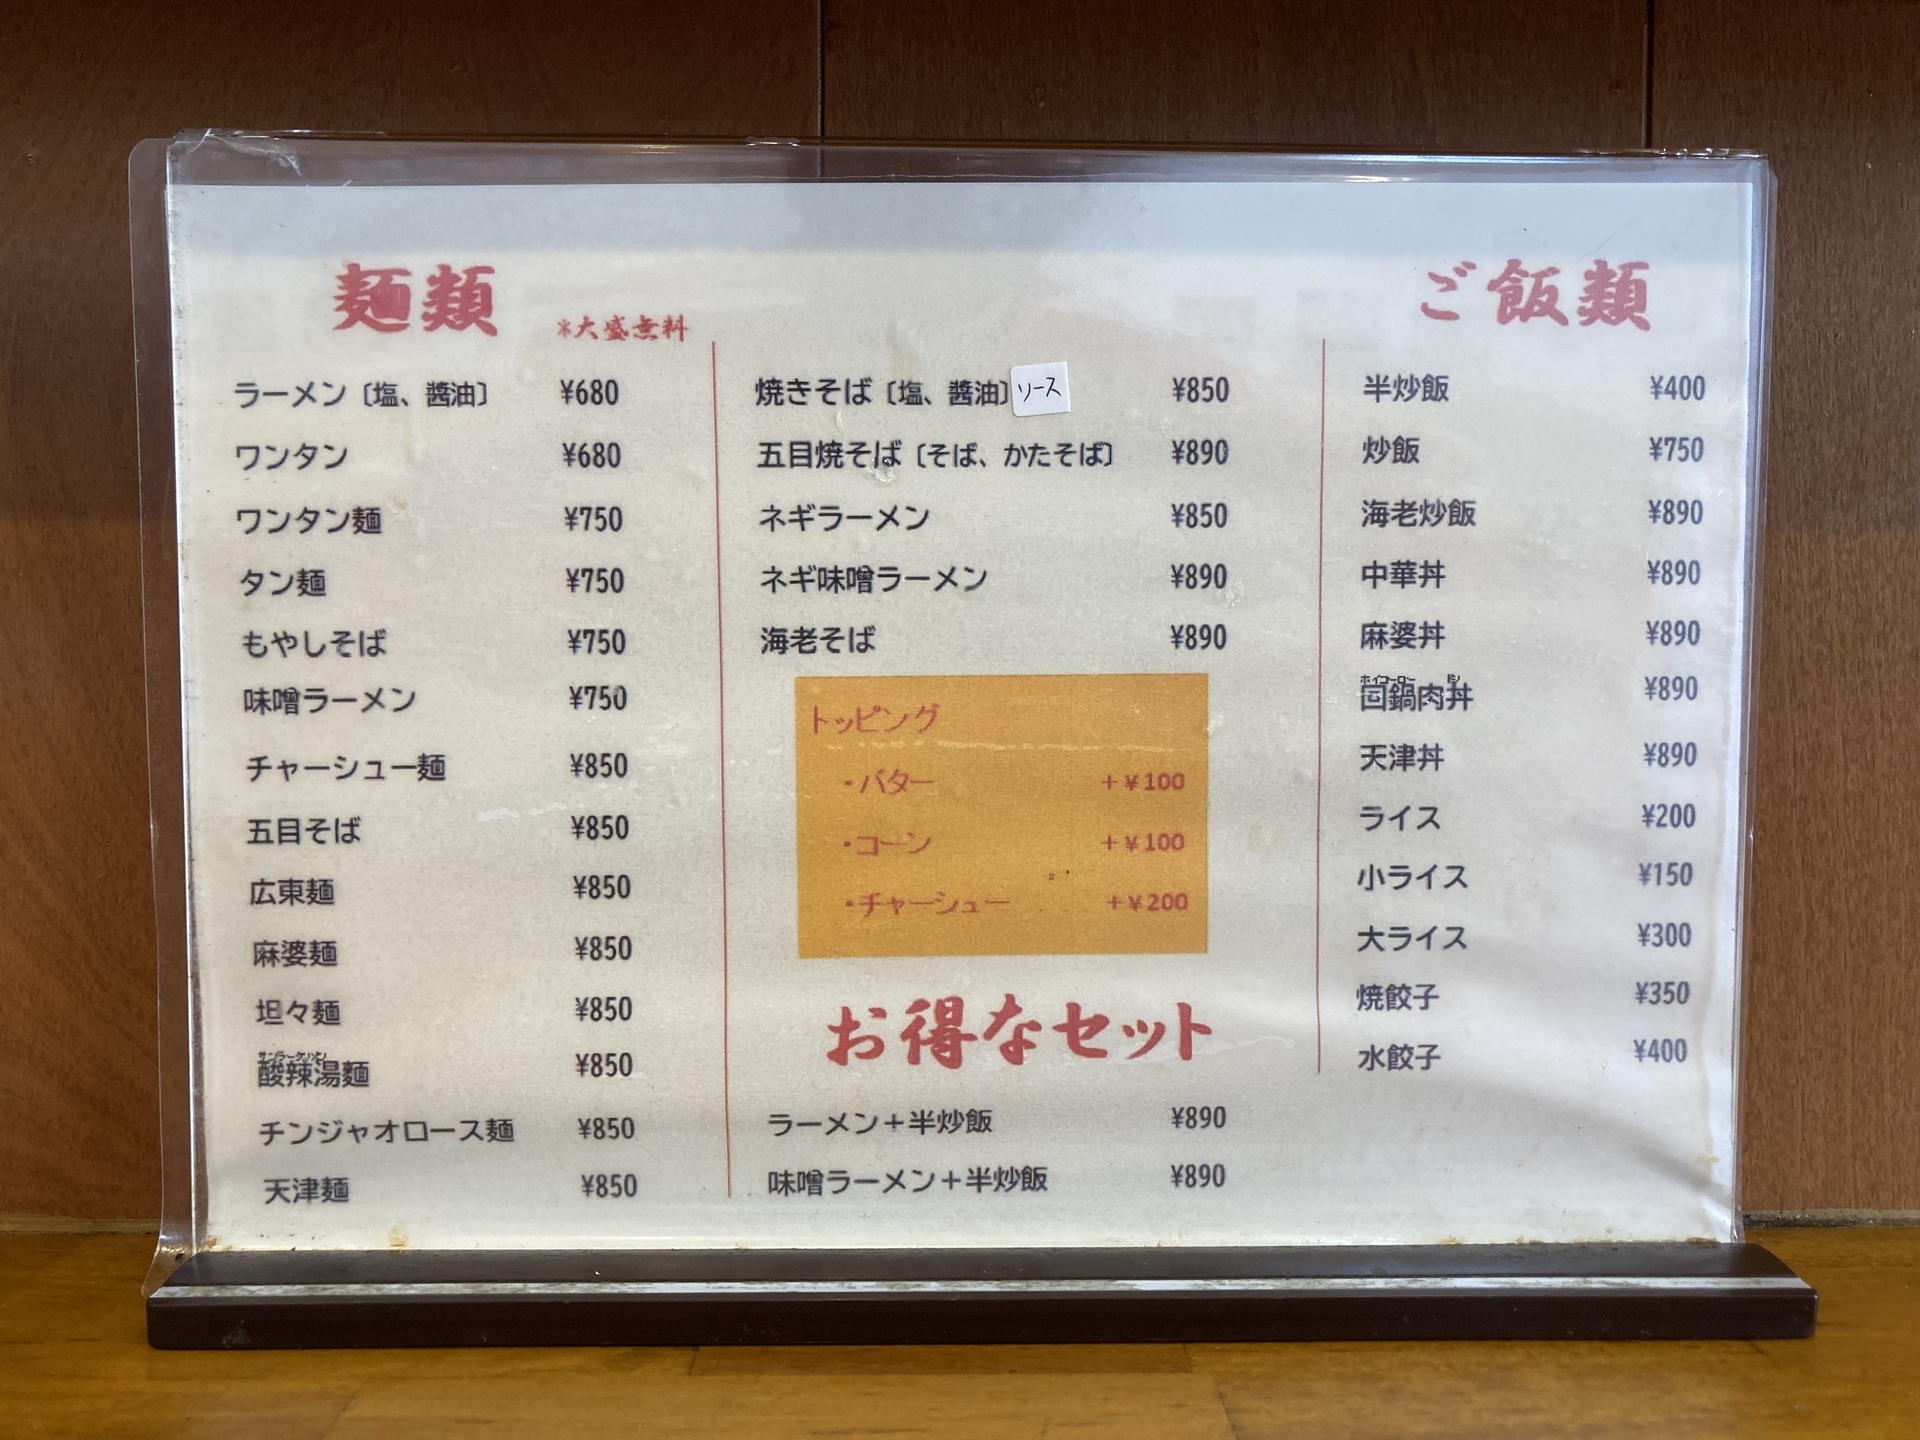 麺類 *大盛無料
ラーメン〔塩、醤油〕 ¥680
ワンタン ¥680
ワンタン麺 ¥750
タン麺 ¥750
もやしそば ¥750
味噌ラーメン ¥750
チャーシュー麺 ¥850
五目そば ¥850
広東麺 ¥850
麻婆麺 ¥850
坦々麺 ¥850
サンラータンメン
酸辣湯麺 ¥850
チンジャオロース麺 ¥850
天津麺 ¥850
焼きそば〔塩、醤油〕ソース ¥850
五目焼そば〔そば、かたそば〕 ¥890
ネギラーメン ¥850
ネギ味噌ラーメン ¥890
海老そば ¥890
トッピング
・バター +¥100
・コーン +¥100
・チャーシュー +¥200
お得なセット
ラーメン+半炒飯 ¥890
味噌ラーメン+半炒飯 ¥890
ご飯類
半炒飯 ¥400
炒飯 ¥750
海老炒飯 ¥890
中華丼 ¥890
麻婆丼 ¥890
ホイコーロー ドン
回鍋肉丼 ¥890
天津丼 ¥890
ライス ¥200
小ライス ¥150
大ライス ¥300
焼餃子 ¥350
水餃子 ¥400